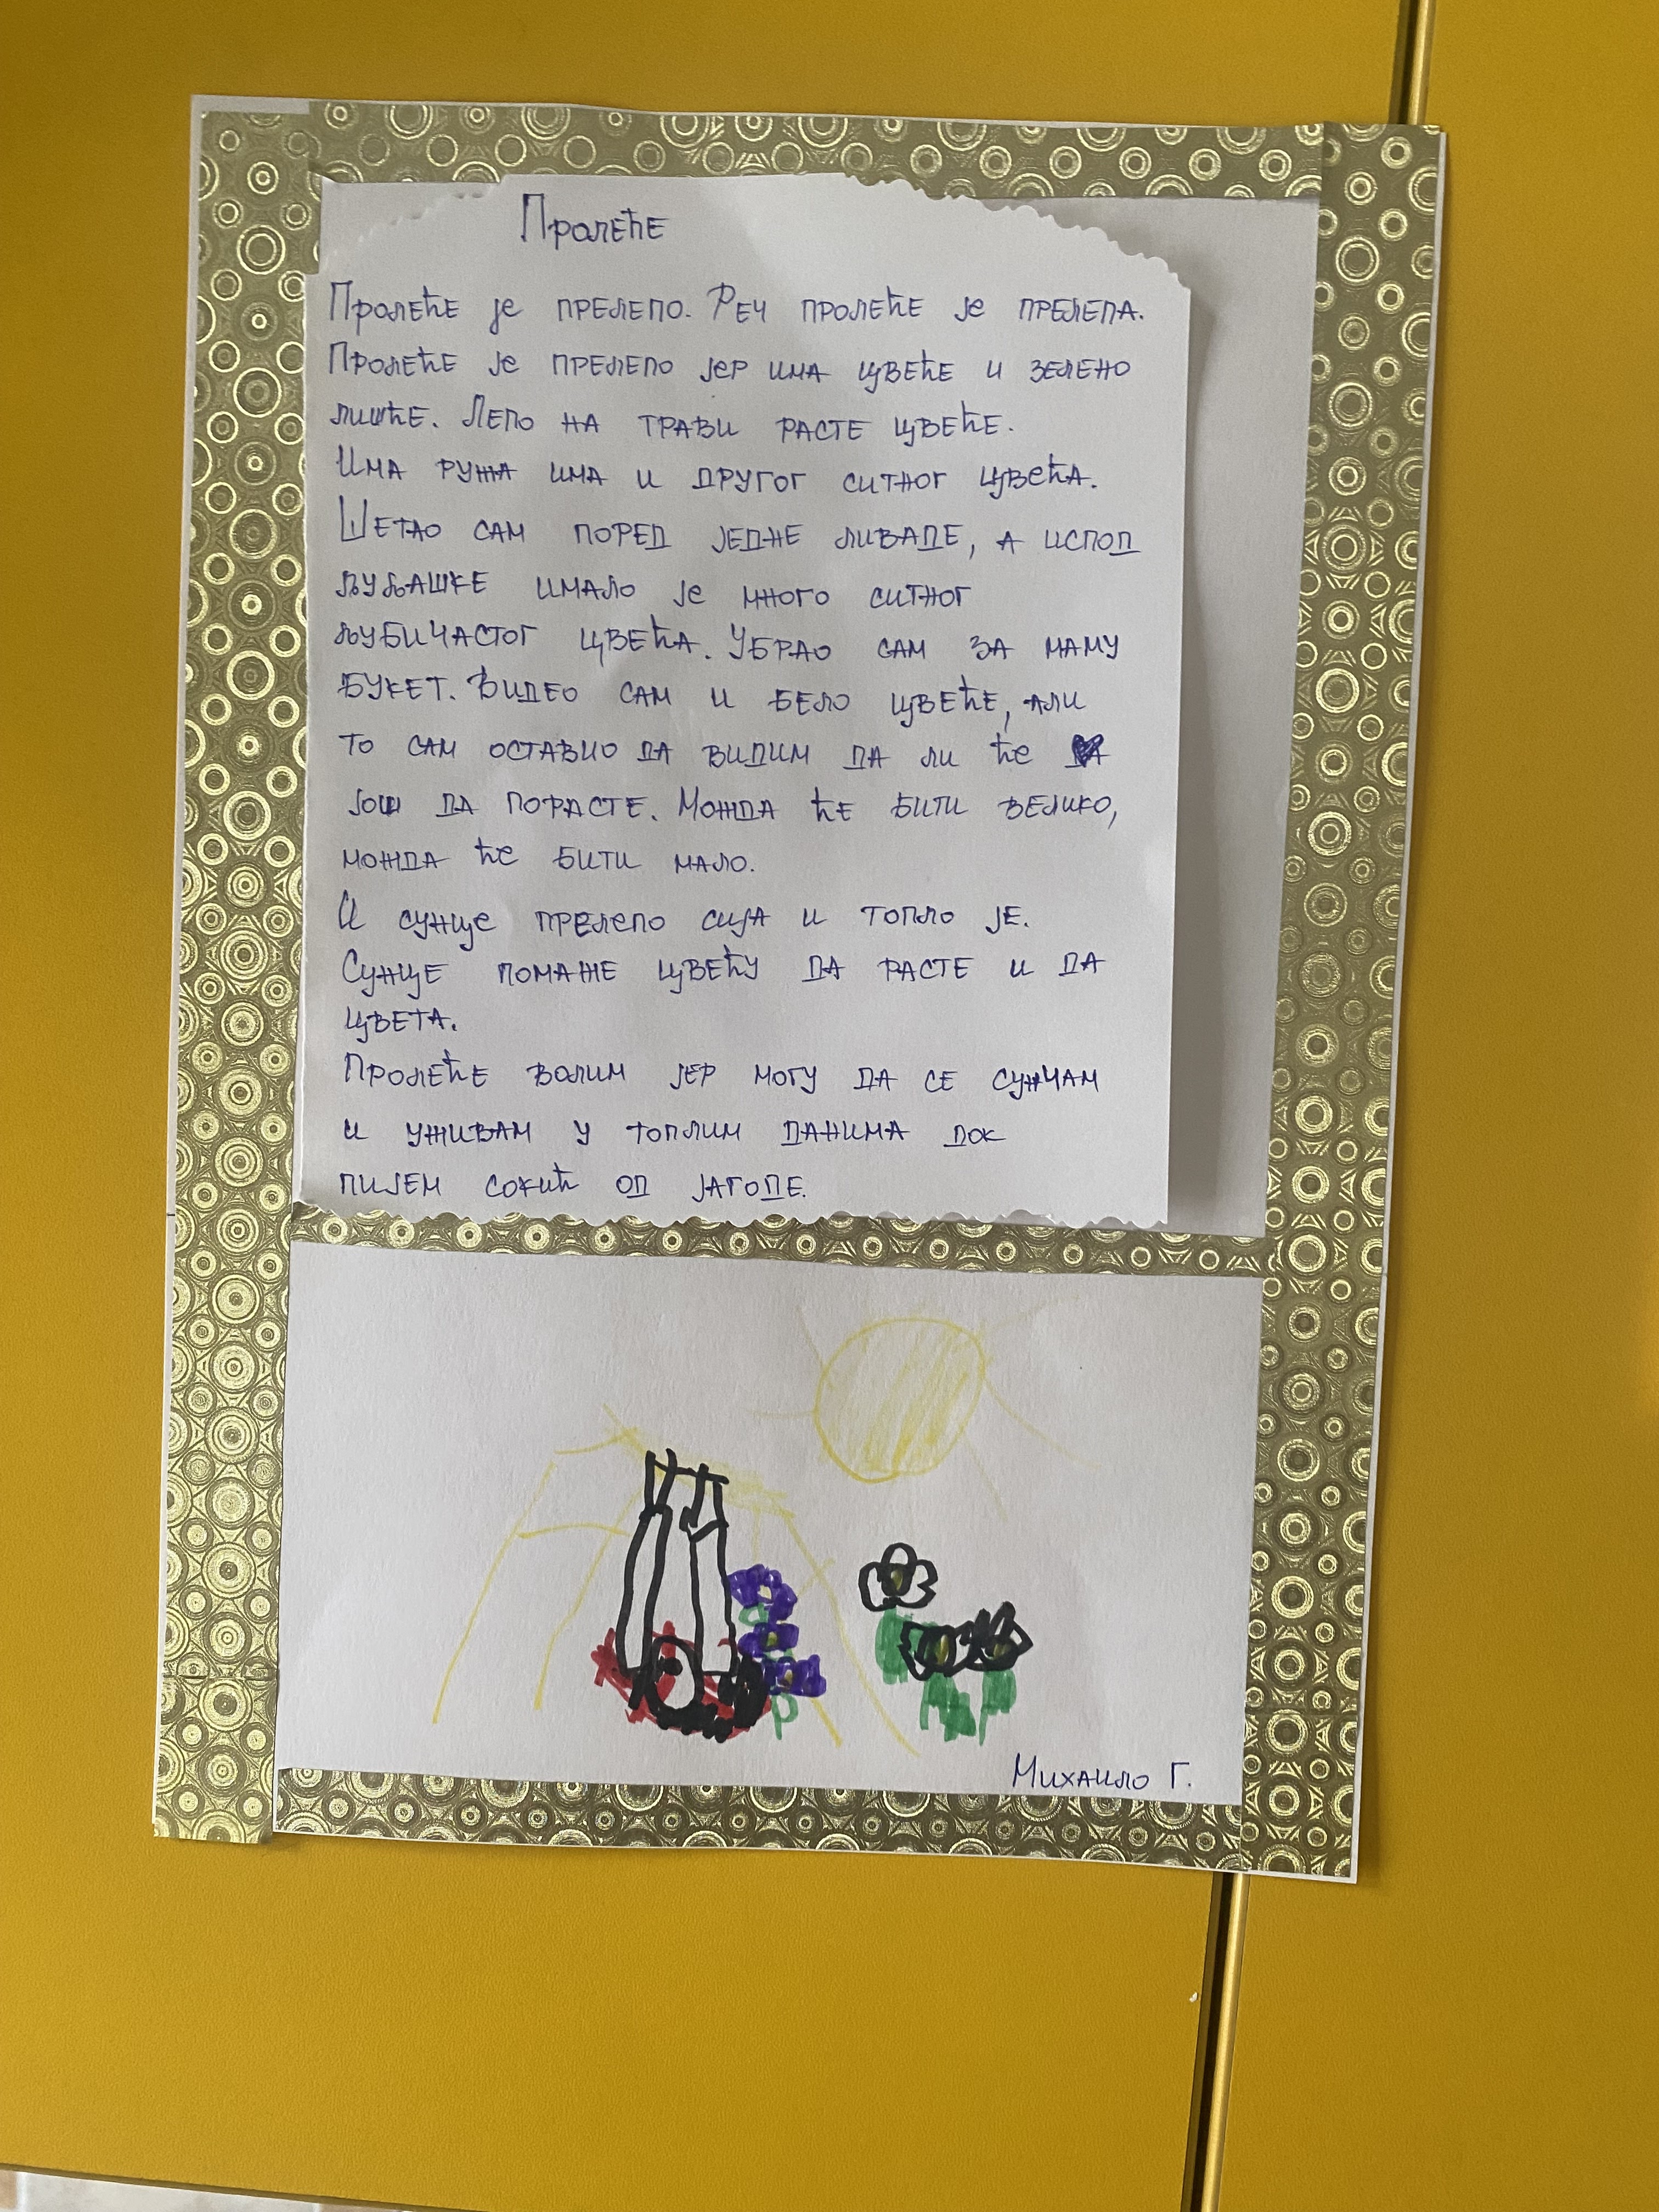 Пролеће
Пролеће је прелепо. Реч пролеће је прелепа.
Пролеће је прелепо јер има цвеће и зелено
лишће. Лепо на трави расте цвеће.
Има ружа има и другог ситног цвећа.
Шетао сам поред једне ливаде, а испод
љуљашке имало је много ситног
љубичастог цвећа. Убрао сам за маму
букет. Видео сам и бело цвеће, али
то сам оставио да видим да ли ће
још да порасте. Можда ће бити велико,
можда ће бити мало.
И сунце прелепо сија и топло је.
Сунце помаже цвећу да расте и да
цвета.
Пролеће волим јер могу да се сунчам
и уживам у топлим данима док
пијем сокић од јагоде.
Михаило Г.